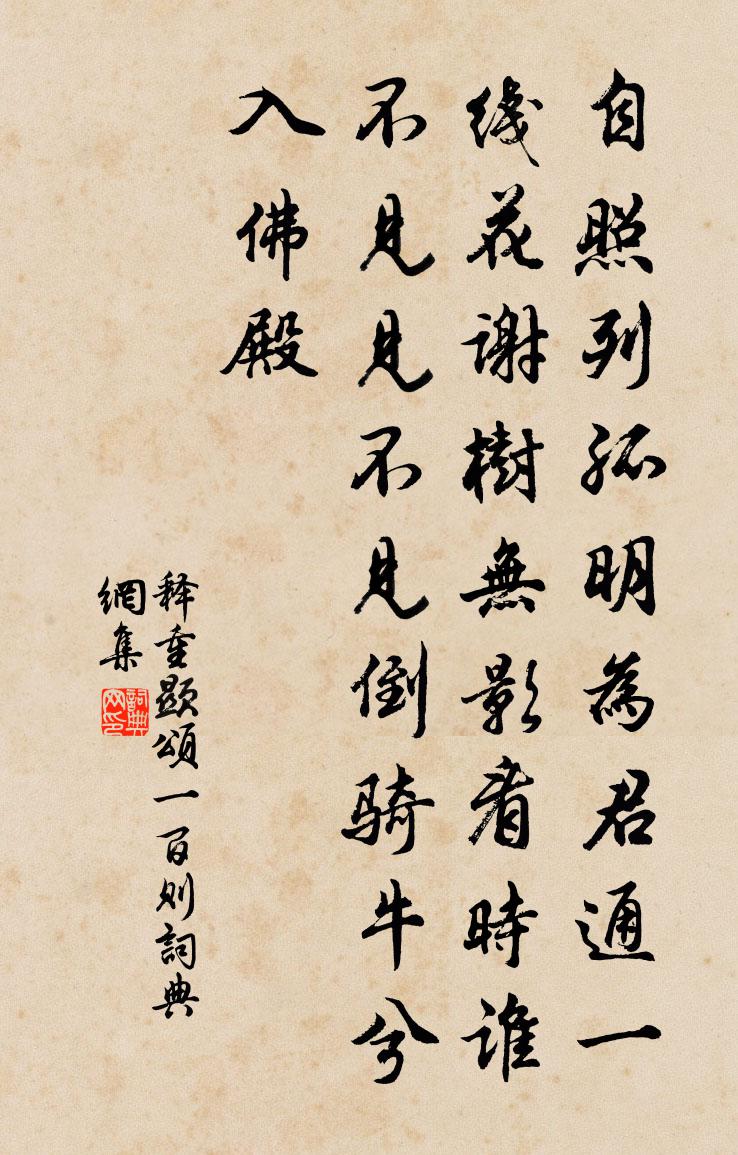 自照列孤明為君通一
线花謝樹無影看時誰
不見見不見倒骑牛兮
入佛殿
释重顯頌一百则詞典
網集
詞典
网印